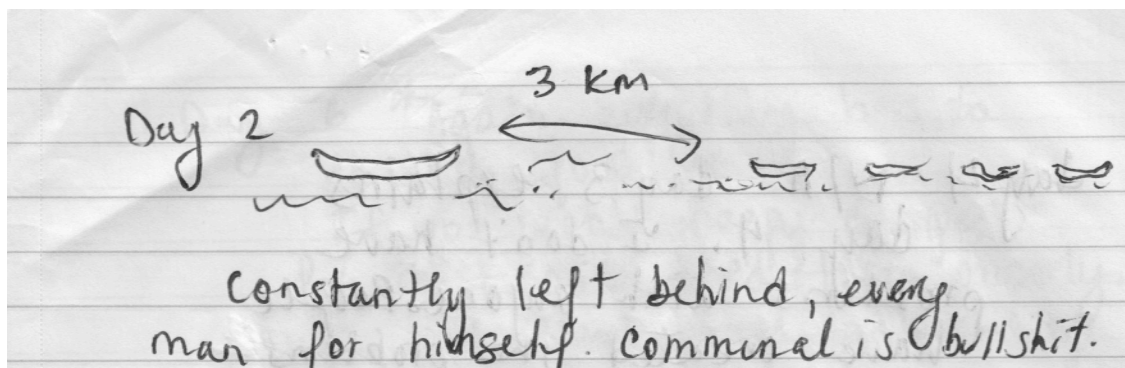 3 km
Day 2
constantly left behind, every
man for himself. communal is bullshit.